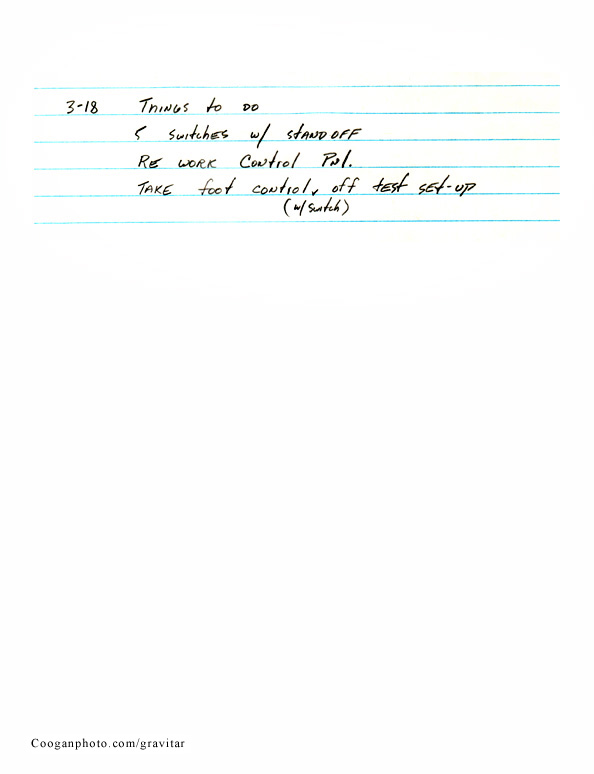 3-18 Things to do
5 switches w/ standoff
Re work Control Pnl.
Take foot control, off test set-up
(w/switch)
Cooganphoto.com/gravitar